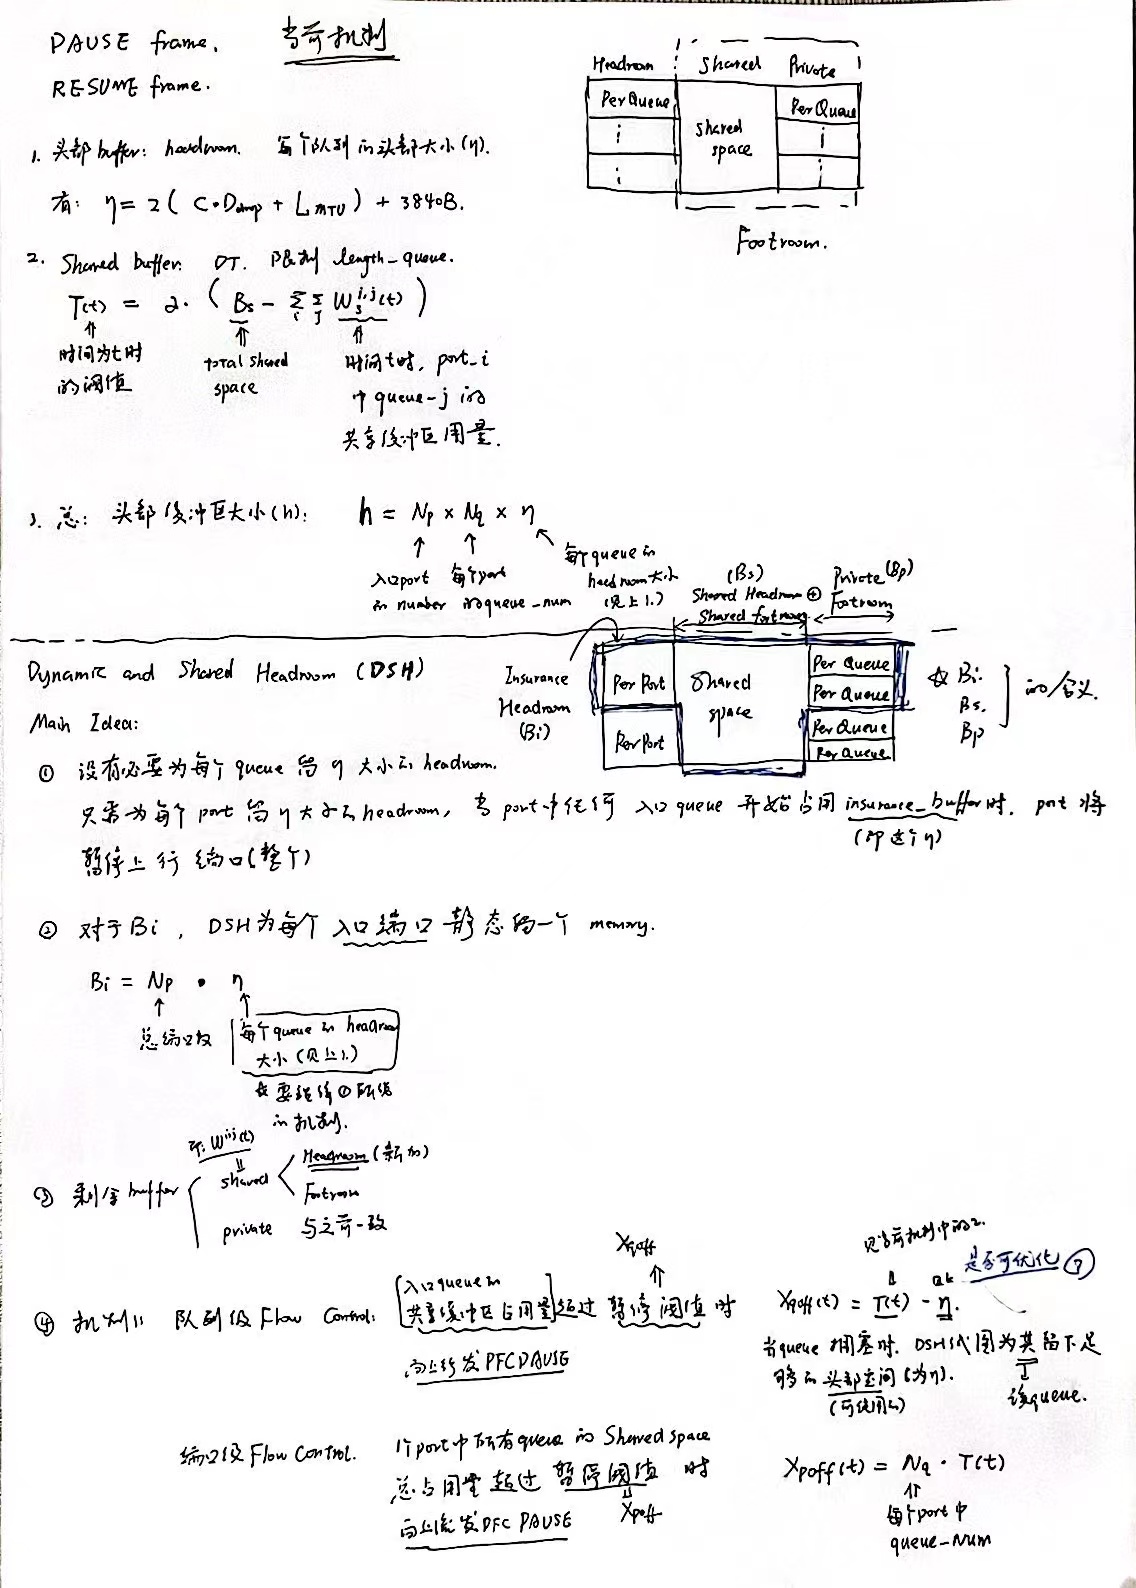 PAUSE frame. 当前机制
RESUME frame.
Headroom Shared Private
Per Queue Shared space Per Queue
Footroom.
1. 头部buffer: headroom. 每个队列的头部大小(η).
有: η = 2( C·Dprop + LMTU ) + 3840B.
2. Shared buffer: DT. 限制 length_queue.
T(t) = α· ( Bs - Σi Σj Ws^i,j(t) )
时间为t时的阈值
total shared space
时间t时, port_i
中queue-j的
共享缓冲区用量.
3. 总: 头部缓冲区大小(h): h = Np × Nq × η
入口port的number
每个port的queue_num
每个queue的headroom大小(见上1.)
(Bs) Shared Headroom ⊕ Shared footroom
Private(Bp) Footroom
Dynamic and Shared Headroom (DSH)
Insurance Headroom (Bi)
Per Port
Per Port
Shared space
Per Queue
Per Queue
Per Queue
Per Queue
☆ Bi. Bs. Bp 的含义.
Main Idea:
① 没有必要为每个queue 留η大小的headroom.
只需为每个port留η大小的headroom, 当port中任何入口queue 开始占用insurance_buffer时. port将
(即这个η)
暂停上行端口(整个)
② 对于Bi, DSH为每个入口端口静态留一个 memory.
Bi = Np · η
总端口数
每个queue的headroom
大小(见上1.)
☆要结合①所给
的机制.
③ 剩余buffer
Wi,j(t)
shared
Headroom(新加)
Footroom
private 与之前一致
④ 机制: 队列级Flow Control: [入口queue的共享缓冲区占用量]超过 暂停阈值 时
Xqoff
向上游发PFC PAUSE
见当前机制中的2.
是否可优化?
Xqoff(t) = T(t) - η.
当queue拥塞时. DSH试图为其留下足
够的头部空间(为η).
(可使用的)
该queue.
端口级Flow Control. 1个port中所有queue的Shared space
总占用量超过 暂停阈值 时
Xpoff
向上游发PFC PAUSE
Xpoff(t) = Nq · T(t)
每个port中
queue-num